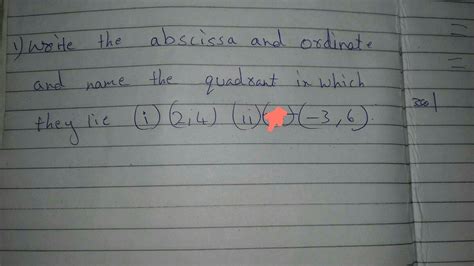 1) Write the abscissa and ordinate
and name the quadrant in which
they lie (i) (2,4) (ii) (-3,6)